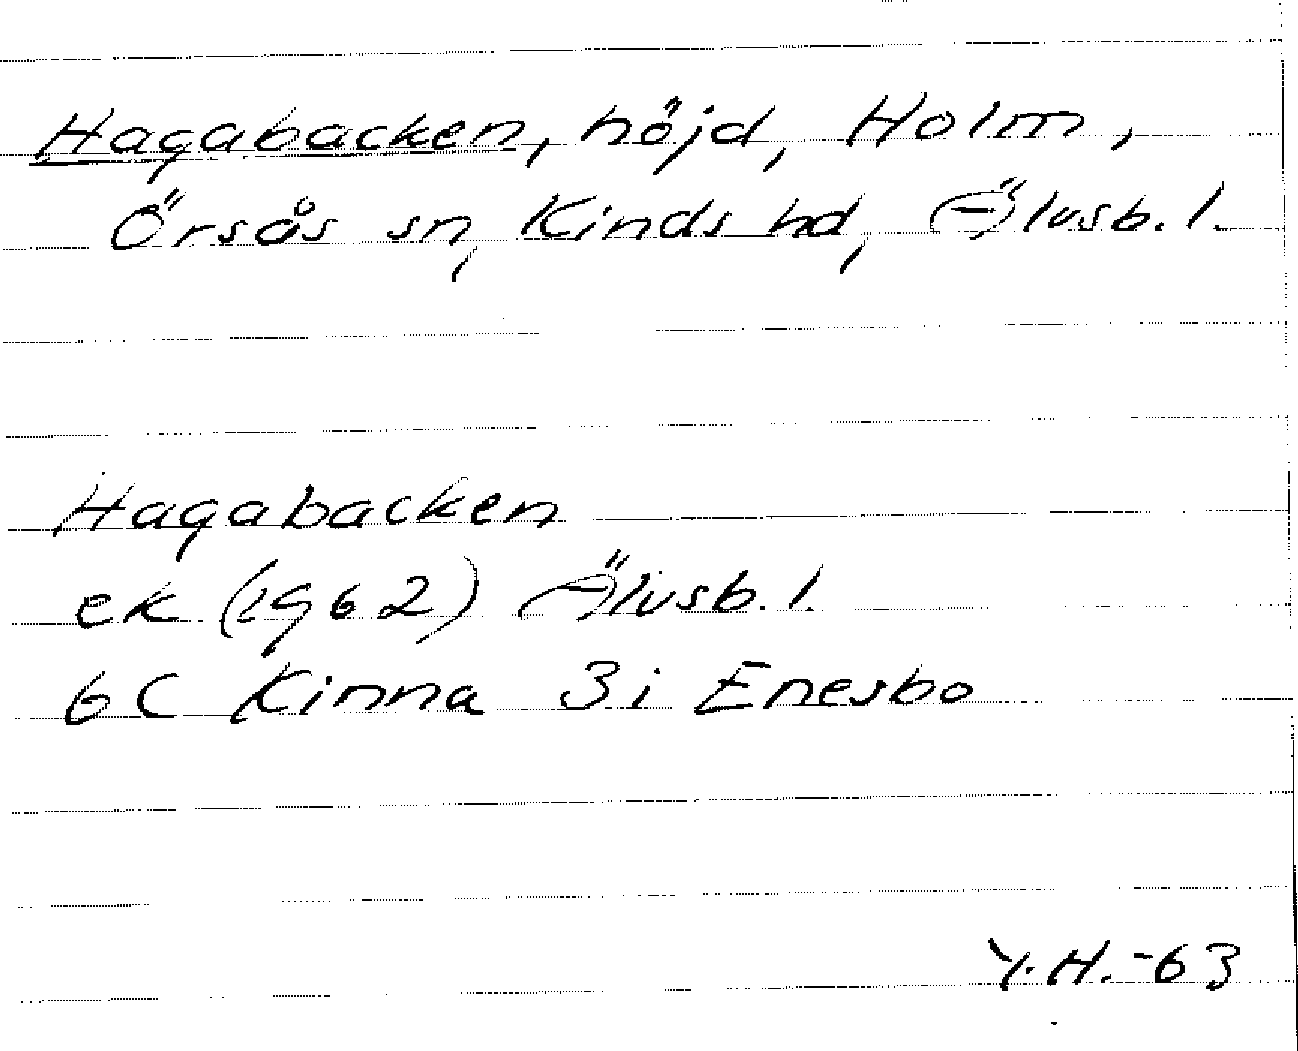 Hagabacken, höjd, Holm,
Örsås sn, Kinds hd, Älvsb. l.
Hagabacken
ek (1962) Älvsb. l.
6C Kinna 3i Enesbo
Y.H.-63